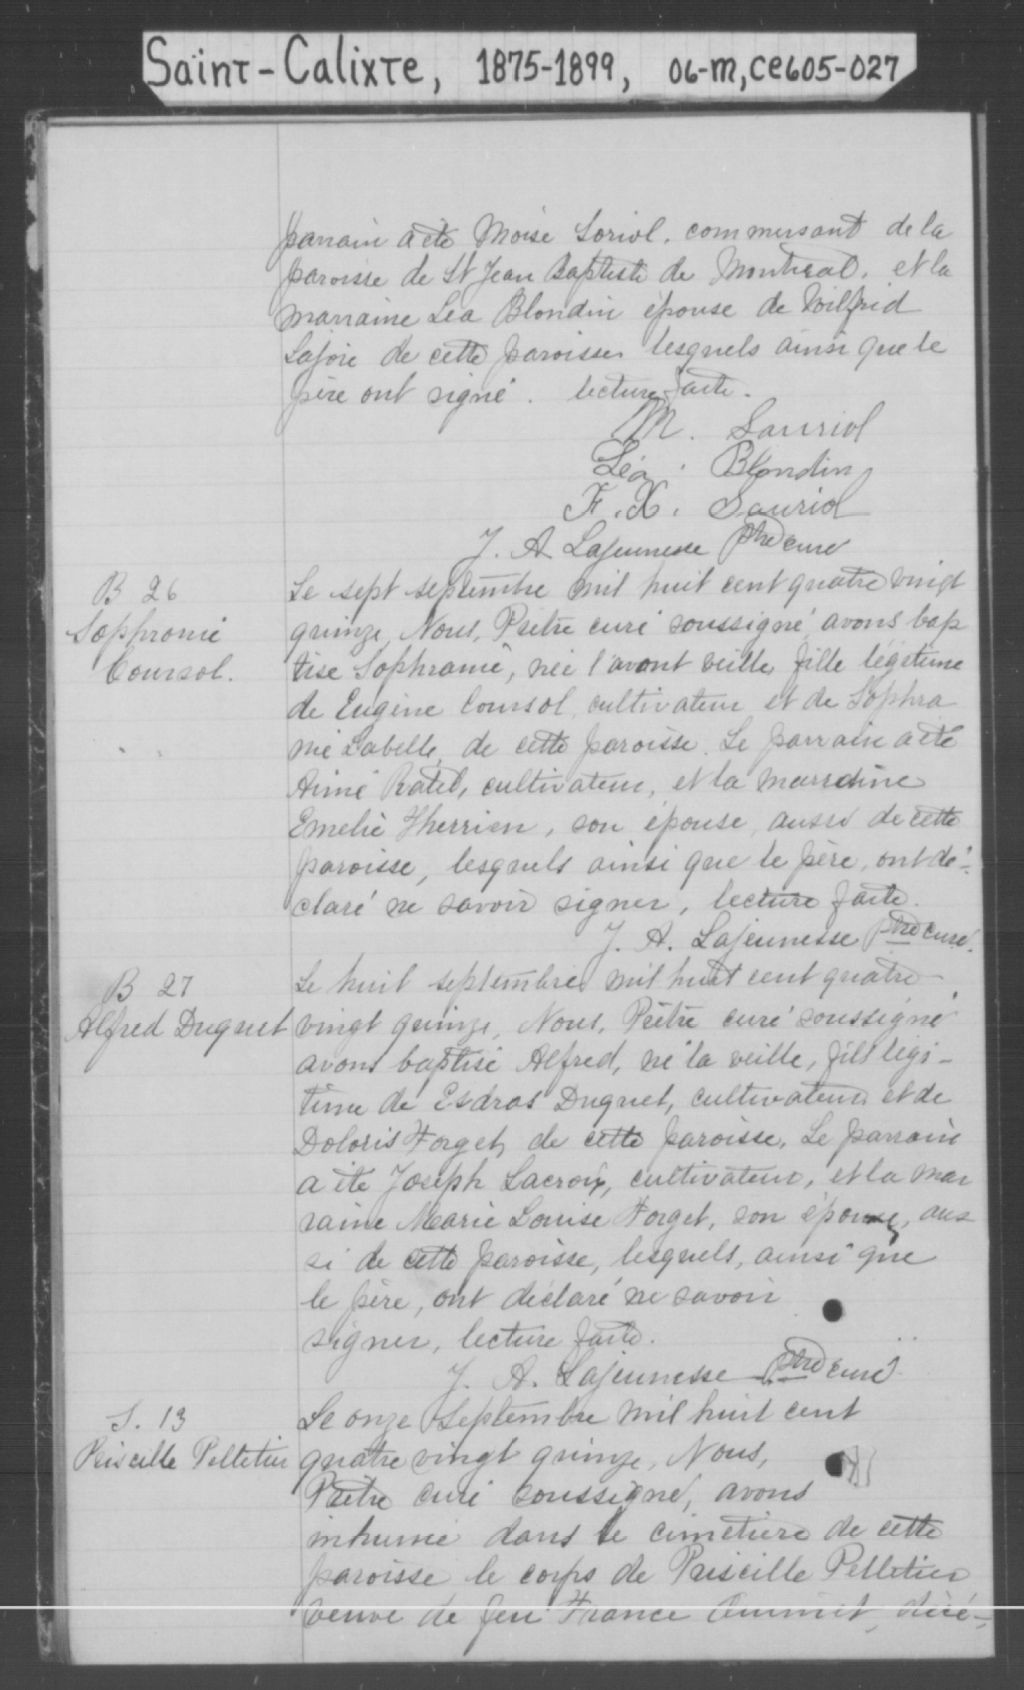 Saint-Calixte, 1875-1899, 06-M, CE605-027
parrain a été Moise Soriol, commersant de la
paroisse de St Jean Baptiste de Montreal, et la
marraine Lea Blondin épouse de Wilfrid
Lajoie de cette paroisse lesquels ainsi que le
père ont signé. lecture faite.
M. Sauriol
Léa Blondin
F. X. Sauriol
J. A. Lajeunesse Ptre curé
B 26
Sophronie
Coursol.
Le sept septembre mil huit cent quatre vingt
quinze, Nous, Prêtre curé soussigné avons bap
tise Sophranie, née l'avant veille, fille légitime
de Eugène Coursol, cultivateur et de Sophra
nie Labelle, de cette paroisse. Le parrain a été
Aimé Ratel, cultivateur, et la marraine
Emelie Therrien, son épouse, aussi de cette
paroisse, lesquels ainsi que le père, ont dé-
claré ne savoir signer, lecture faite.
J. A. Lajeunesse Ptre curé.
B 27
Alfred Duquet
Le huit septembre mil huit cent quatre
vingt quinze, Nous, Prêtre curé soussigné
avons baptisé Alfred, né la veille, fils légi-
time de Esdras Duquet, cultivateur et de
Doloris Forget, de cette paroisse, Le parrain
a été Joseph Lacroix, cultivateur, et la mar
raine Marie Louise Forget, son épouse, aus
si de cette paroisse, lesquels, ainsi que
le père, ont déclaré ne savoir
signer, lecture faite.
J. A. Lajeunesse Ptre curé.
S. 13
Priscille Pelletier
Le onze Septembre mil huit cent
quatre vingt quinze, Nous,
Prêtre curé soussigné, avons
inhumé dans le cimetière de cette
paroisse le corps de Priscille Pelletier
veuve de feu France décé-